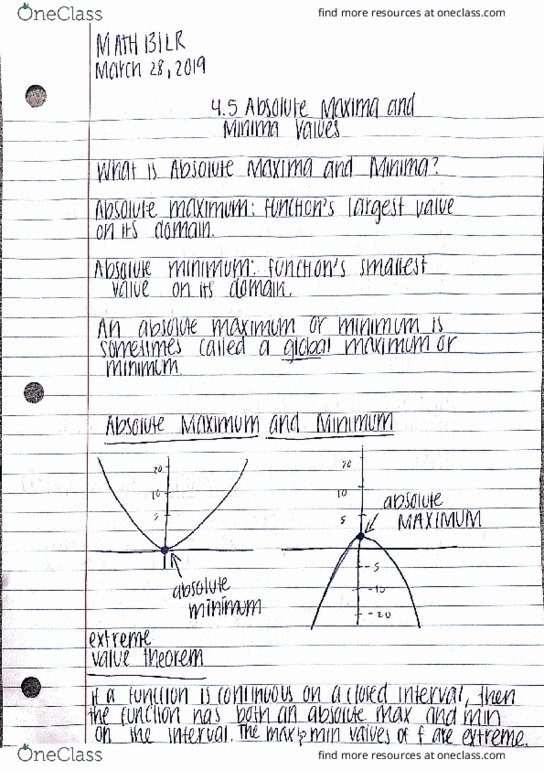 OneClass
find more resources at oneclass.com
MATH 131LR
March 28, 2019
4.5 Absolute Maxima and
Minima Values
What is Absolute Maxima and Minima?
Absolute maximum: function's largest value
on its domain.
Absolute minimum: function's smallest
value on its domain.
An absolute maximum or minimum is
sometimes called a global maximum or
minimum.
Absolute Maximum and Minimum
20
10
5
absolute
minimum
20
10
5
absolute
MAXIMUM
-5
-10
-20
extreme
value theorem
if a function is continuous on a closed interval, then
the function has both an absolute max and min
on the interval. The max & min values of f are extreme.
OneClass
find more resources at oneclass.com